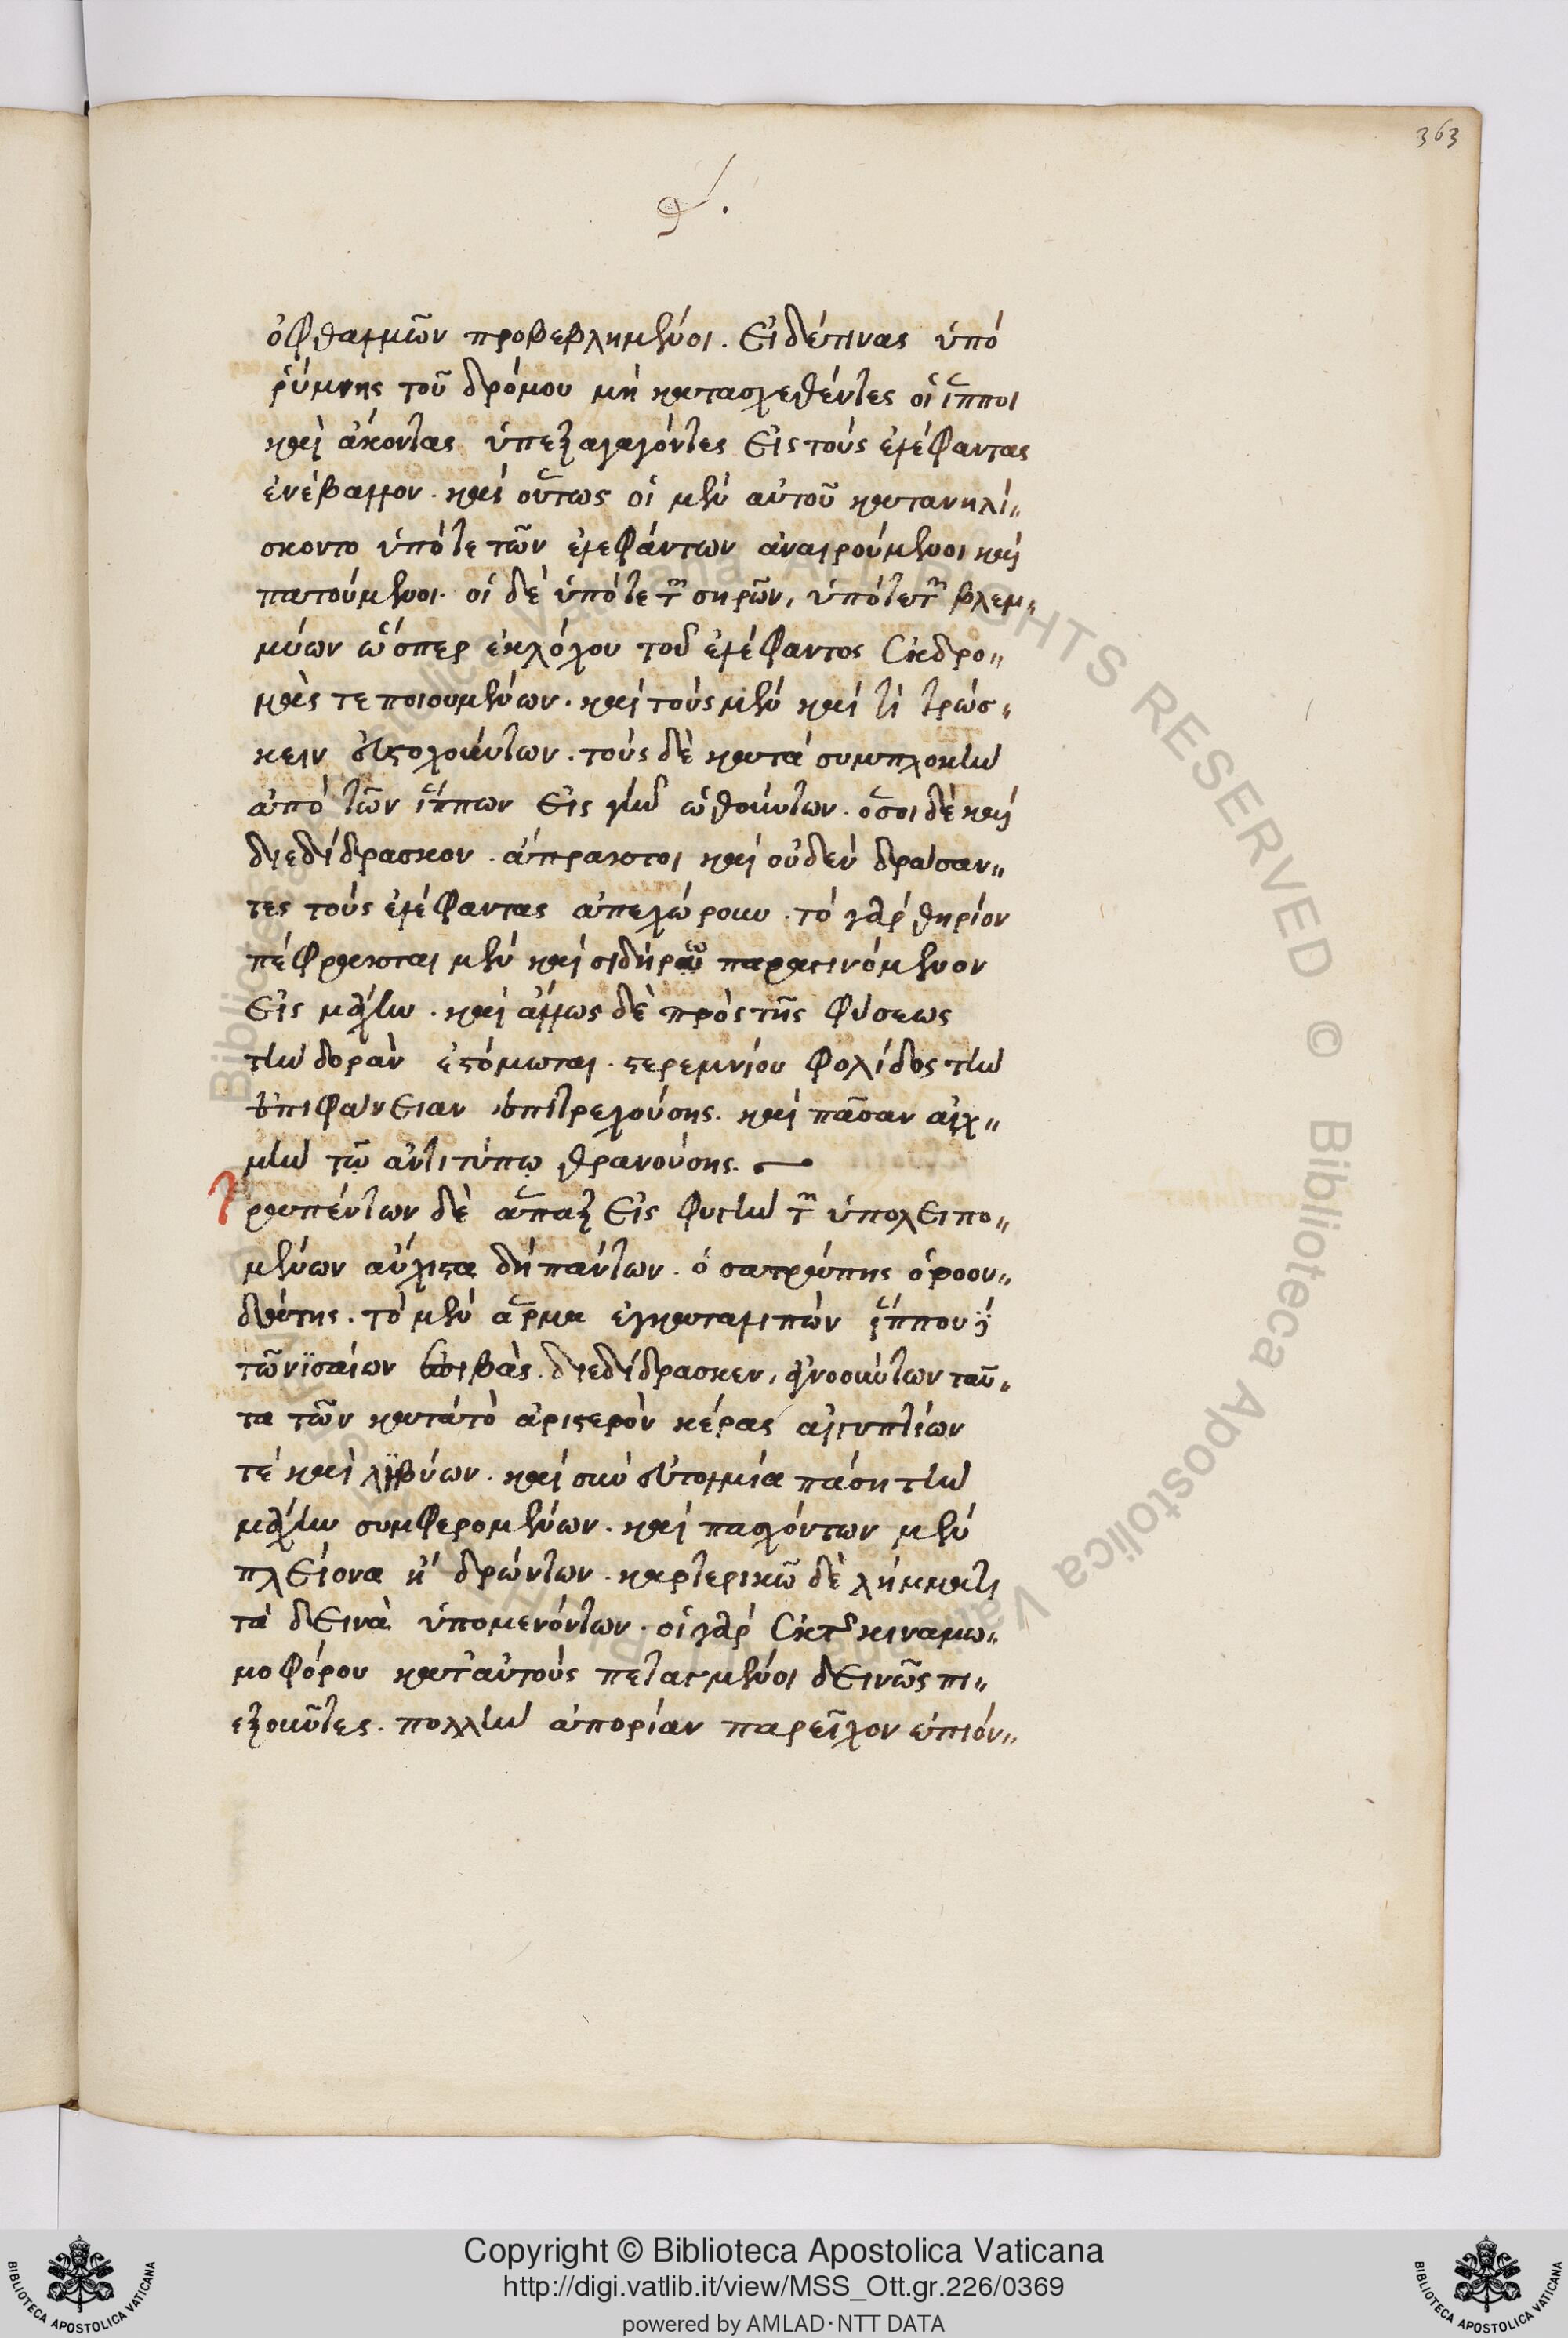 363
θ΄.
ὀφθαλμῶν προβεβλημένοι. εἰ δέ τινας ὑπό
ῥύμης τοῦ δρόμου μὴ κατασχεθέντες οἱ ἵπποι
καὶ ἄκοντας ὑπεξαγαγόντες εἰς τοὺς ἐλέφαντας
ἐνέβαλλον. καὶ οὕτως οἱ μὲν αὐτοῦ κατανηλί„
σκοντο ὑπό τε τῶν ἐλεφάντων ἀναιρούμενοι καὶ
πατούμενοι. οἱ δὲ ὑπό τε τῶν σηρῶν, ὑπό τε τῶν βλεμ„
μύων ὥσπερ ἐκ λόχου τοῦ ἐλέφαντος ἐκδρο„
μὰς τε ποιουμένων. καὶ τοὺς μὲν καὶ τιτρώσ„
κειν εὐστοχούντων. τοὺς δὲ κατὰ συμπλοκὴν
ἀπὸ τῶν ἵππων εἰς γῆν ὠθούντων. ὅσοι δὲ καὶ
διεδίδρασκον. ἄπρακτοι καὶ οὐδὲν δράσαν„
τες τοὺς ἐλέφαντας ἀπεχώρουν. τὸ γὰρ θηρίον
πέφρακται μὲν καὶ σιδήρῳ παραγινόμενον
εἰς μάχην. καὶ ἄλλως δὲ πρὸς τῆς φύσεως
τὴν δορὰν ἐστόμωται. στερεμνίου φολίδος τὴν
ἐπιφάνειαν ἐπιτρεχούσης. καὶ πᾶσαν αἰχ„
μὴν τῷ ἀντιτύπῳ θρανούσης.
Τραπέντων δὲ ἅπαξ εἰς φυγὴν τῶν ὑπολειπο„
μένων αὔχιστα δὴ πάντων. ὁ σατράπης ὀροον„
δάτης. τὸ μὲν ἅρμα ἐγκαταλιπὼν ἵππου δέ
τῶν νϊσαίων ἐπιβὰς. διεδίδρασκεν, ἀγνοούντων ταῦ„
τα τῶν κατὰ τὸ ἀριστερὸν κέρας αἰγυπτίων
τὲ καὶ λϊβύων. καὶ σὺν εὐτολμία πάση τὴν
μάχην συμφερομένων. καὶ πασχόντων μὲν
πλείονα ἢ δρώντων. καρτερικῷ δὲ λήμματι
τὰ δεινὰ ὑπομενόντων. οἱ γὰρ ἐκ τῆς κιναμω„
μοφόρου κατ᾽ αὐτοὺς τεταγμένοι δεινῶς πι„
εζοῦντες. πολλὴν ἀπορίαν παρεῖχον ἐπιόν„
Biblioteca Apostolica Vaticana ALL RIGHTS RESERVED © Biblioteca Apostolica Vaticana
Copyright © Biblioteca Apostolica Vaticana
http://digi.vatlib.it/view/MSS_Ott.gr.226/0369
powered by AMLAD·NTT DATA
BIBLIOTECA APOSTOLICA VATICANA
BIBLIOTECA APOSTOLICA VATICANA